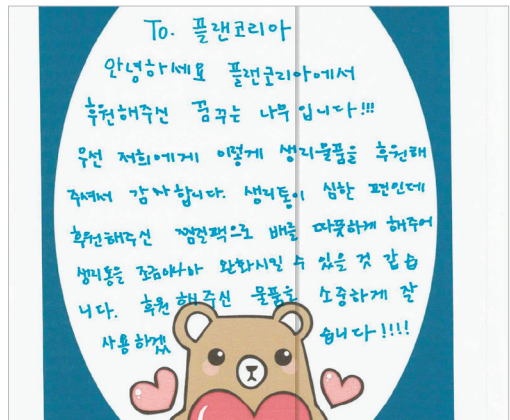 To. 플랜코리아
안녕하세요 플랜코리아에서
후원해주신 꿈꾸는 나무입니다!!!
우선 저희에게 이렇게 생리물품을 후원해
주셔서 감사합니다. 생리통이 심한 편인데
후원해주신 찜질팩으로 배를 따뜻하게 해주어
생리통을 조금이나마 완화시킬 수 있을 것 같습
니다. 후원해주신 물품을 소중하게 잘
사용하겠 습니다!!!!